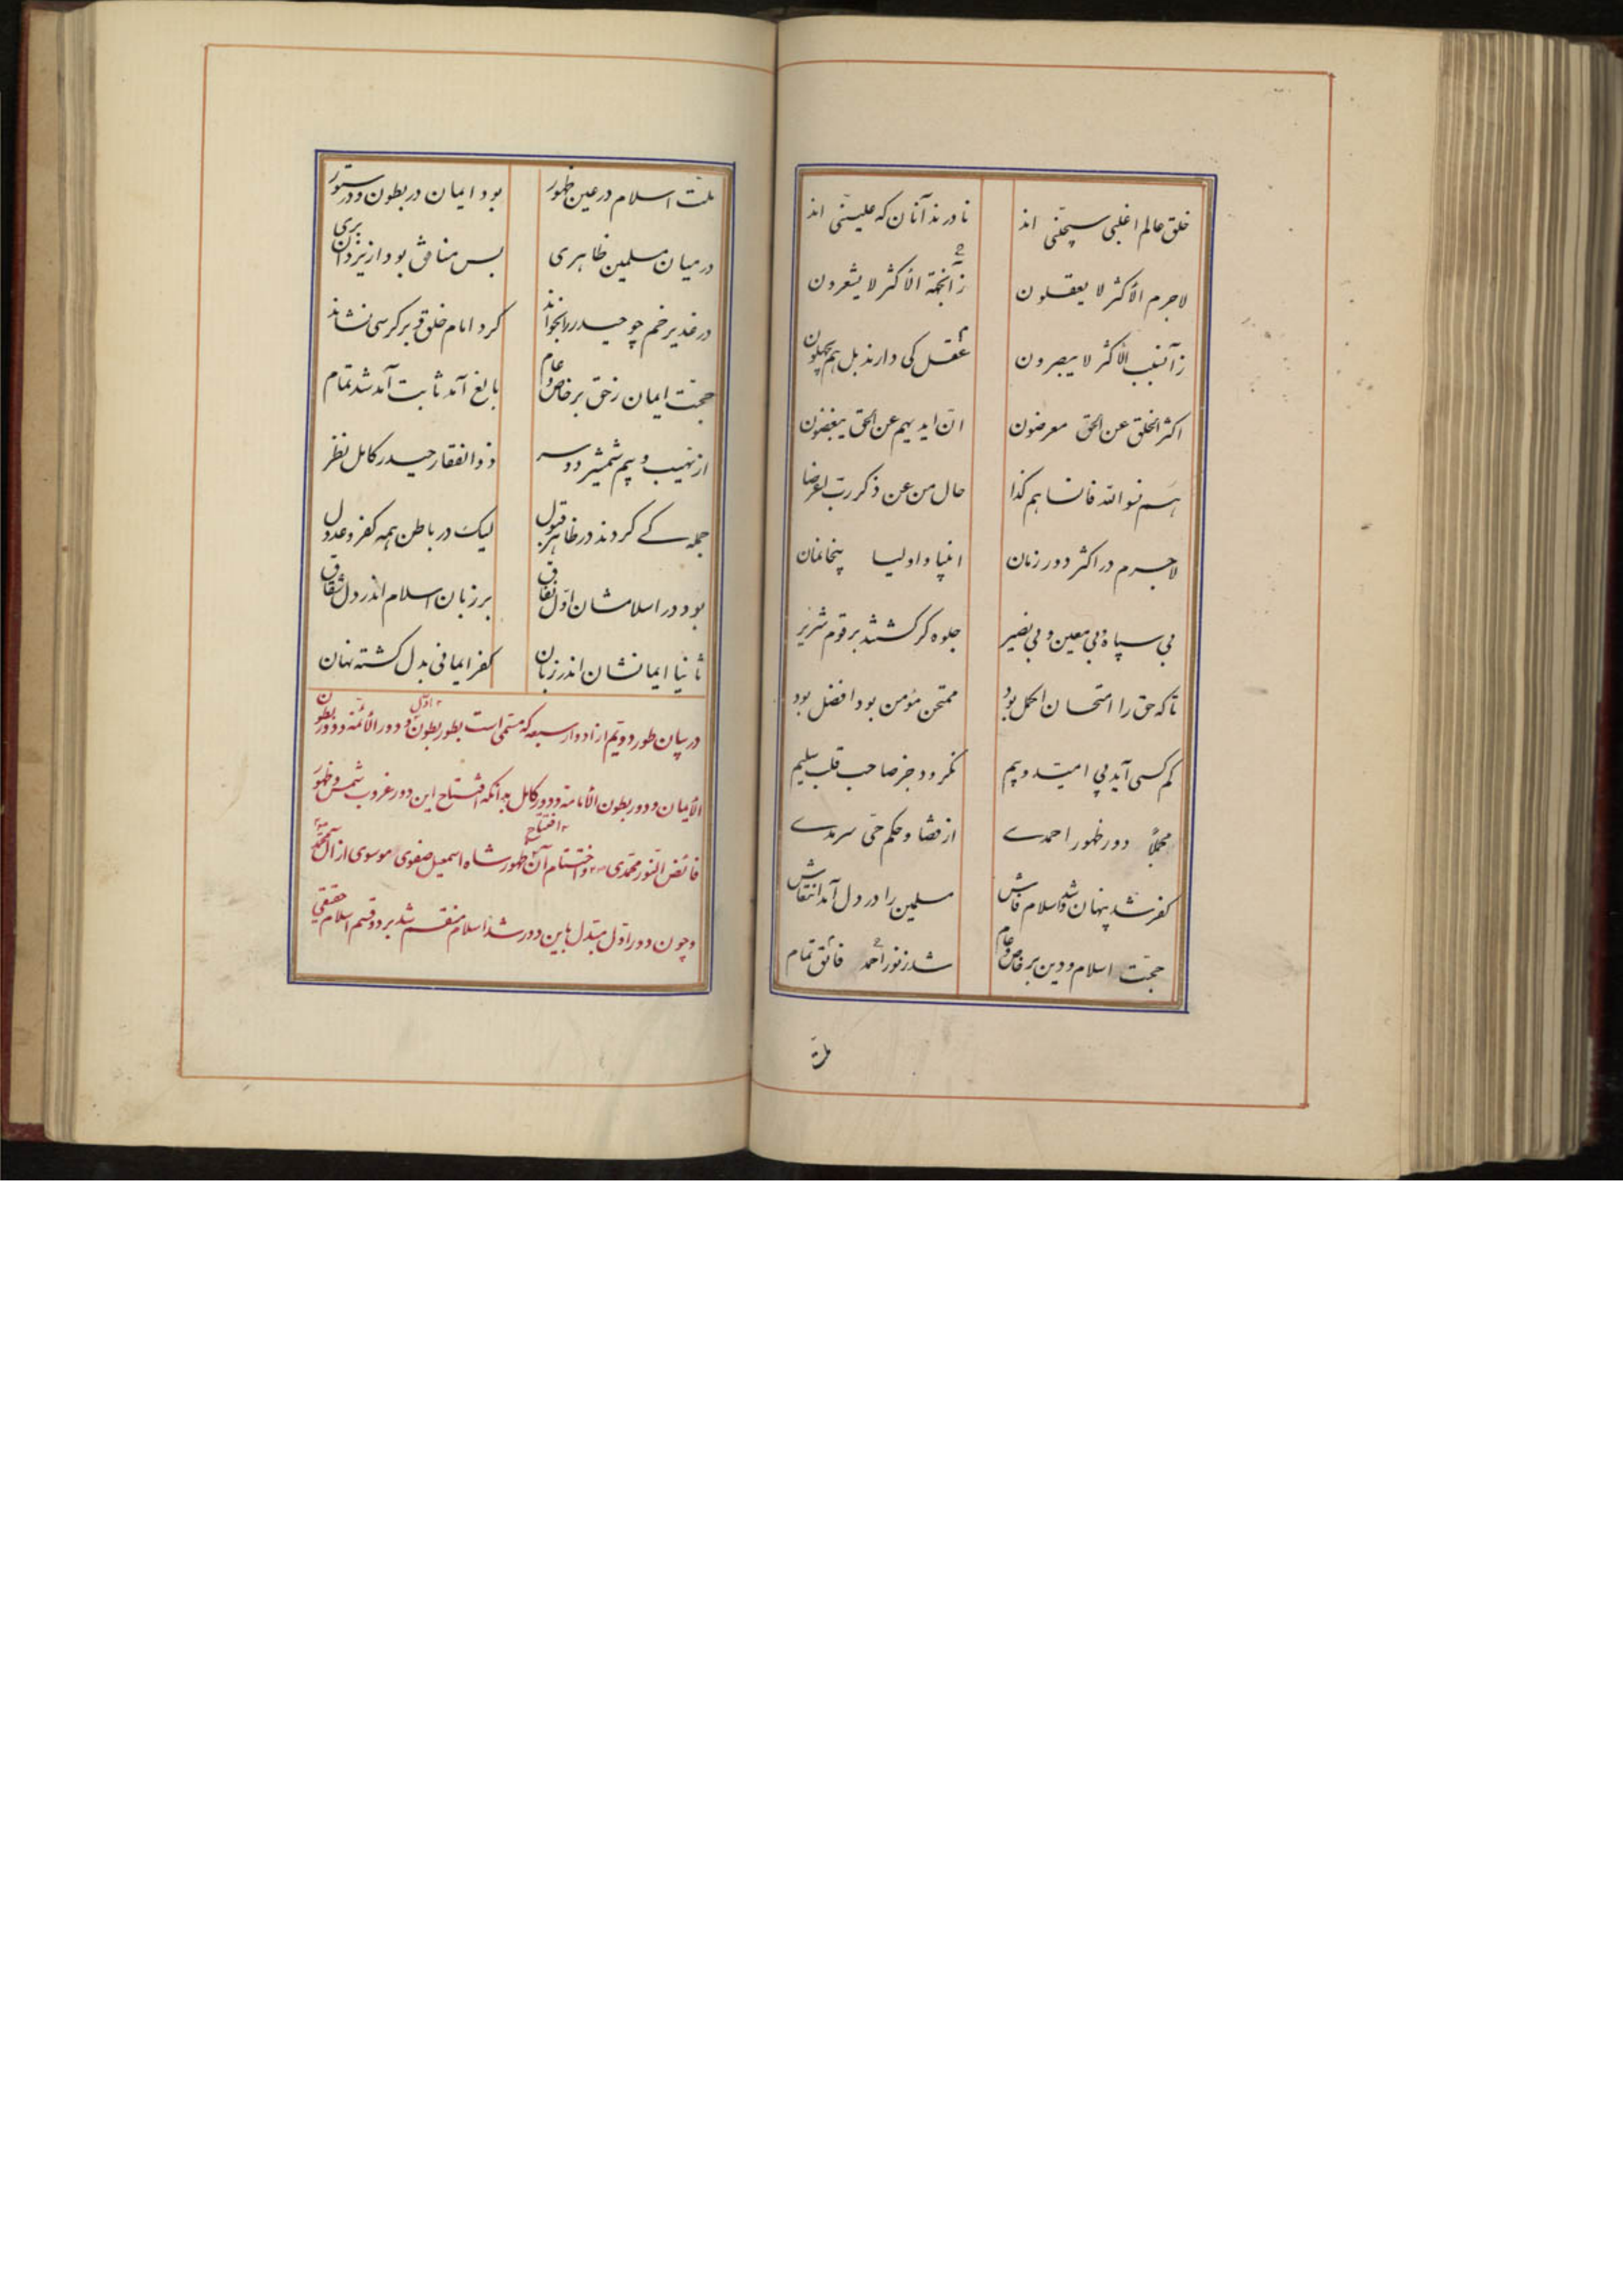 خلق عالم اغلبی سجّینی اند نادرند آنان که علیینی اند
لاجرم الأکثر لا یعقلون زانجهة الأکثر لا یشعرون
زآنسبب الأکثر لا یبصرون عقل کی دارند بل هم یجهلون
اکثر الخلق عن الحق معرضون انّ ایدیهم عن الحق یقبضون
هم نسوا الله فانساهم کذا حال من عن ذکر رب اعرضا
لاجرم در اکثر دور زمان انبیا و اولیا پنخانمان
بی سپاه و بی معین و بی نصیر جلوه گر گشتند بر قوم شریر
تا که حق را امتحان اکمل بود ممتحن مؤمن بود افضل بود
کم کسی آید پی امّید و بیم نگرود جز صاحب قلب سلیم
مجملاً دور ظهور احمدے از قضا و حکم حیّ سرمدے
کفر شد پنهان و شد اسلام فاش مسلمین را در دل آمد انتقاش
حجّت اسلام و دین بر خاص و عام شد ز نور احمد فائق تمام
ملة
ملّت اسلام در عین ظهور بود ایمان در بطون و در ستور
در میان مسلمین ظاهری بس منافق بود از یزدان بری
در غدیر خم چو حیدر را بخواند کرد امام خلق و بر کرسی نشاند
حجّت ایمان ز حق بر خاص و عام بالغ آمد ثابت آمد شد تمام
از نهیب و بیم شمشیر دو سر ذوالفقار حیدر کامل نظر
جملگے کردند در ظاهر قبول لیک در باطن همه کفر و عدول
بود در اسلامشان اوّل نفاق بر زبان اسلام اندر دل شقاق
ثانیا ایمانشان اندر زبان کفر ایمانی بدل گشته نهان
در بیان طور دویّم از ادوار سبعه که مسمّی است بطور بطون اوّل و دور الأئمة و دور بطون
الأیمان و دور بطون الأمامة و دور کامل بدانکه افتتاح این دور غروب شمس و ظهور
فائض النّور محمّدی و اختتام آن افتتاح ظهور شاه اسمعیل صفوی موسوی از آل محمّد
و چون دور اوّل مبتدل باین دور شد اسلام منقسم شد بر دو قسم اسلام حقیقی